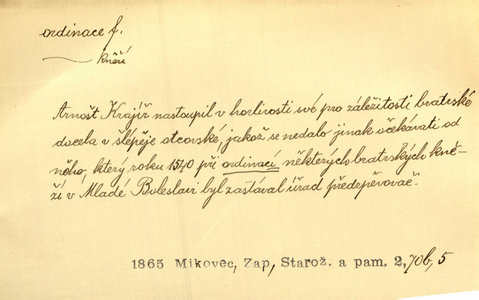 ordinace f.
kněží
Arnošt Krajíř nastoupil v horlivosti své pro záležitosti bratrské
docela v šlépěje otcovské, jakož se nedalo jinak očekávati od
něho, který roku 1540 při ordinací některých bratrských kně-
ží v Mladé Boleslavi byl zastával úřad předzpěvovač.
1865 Mikovec, Zap, Starož. a pam. 2, 70b, 5